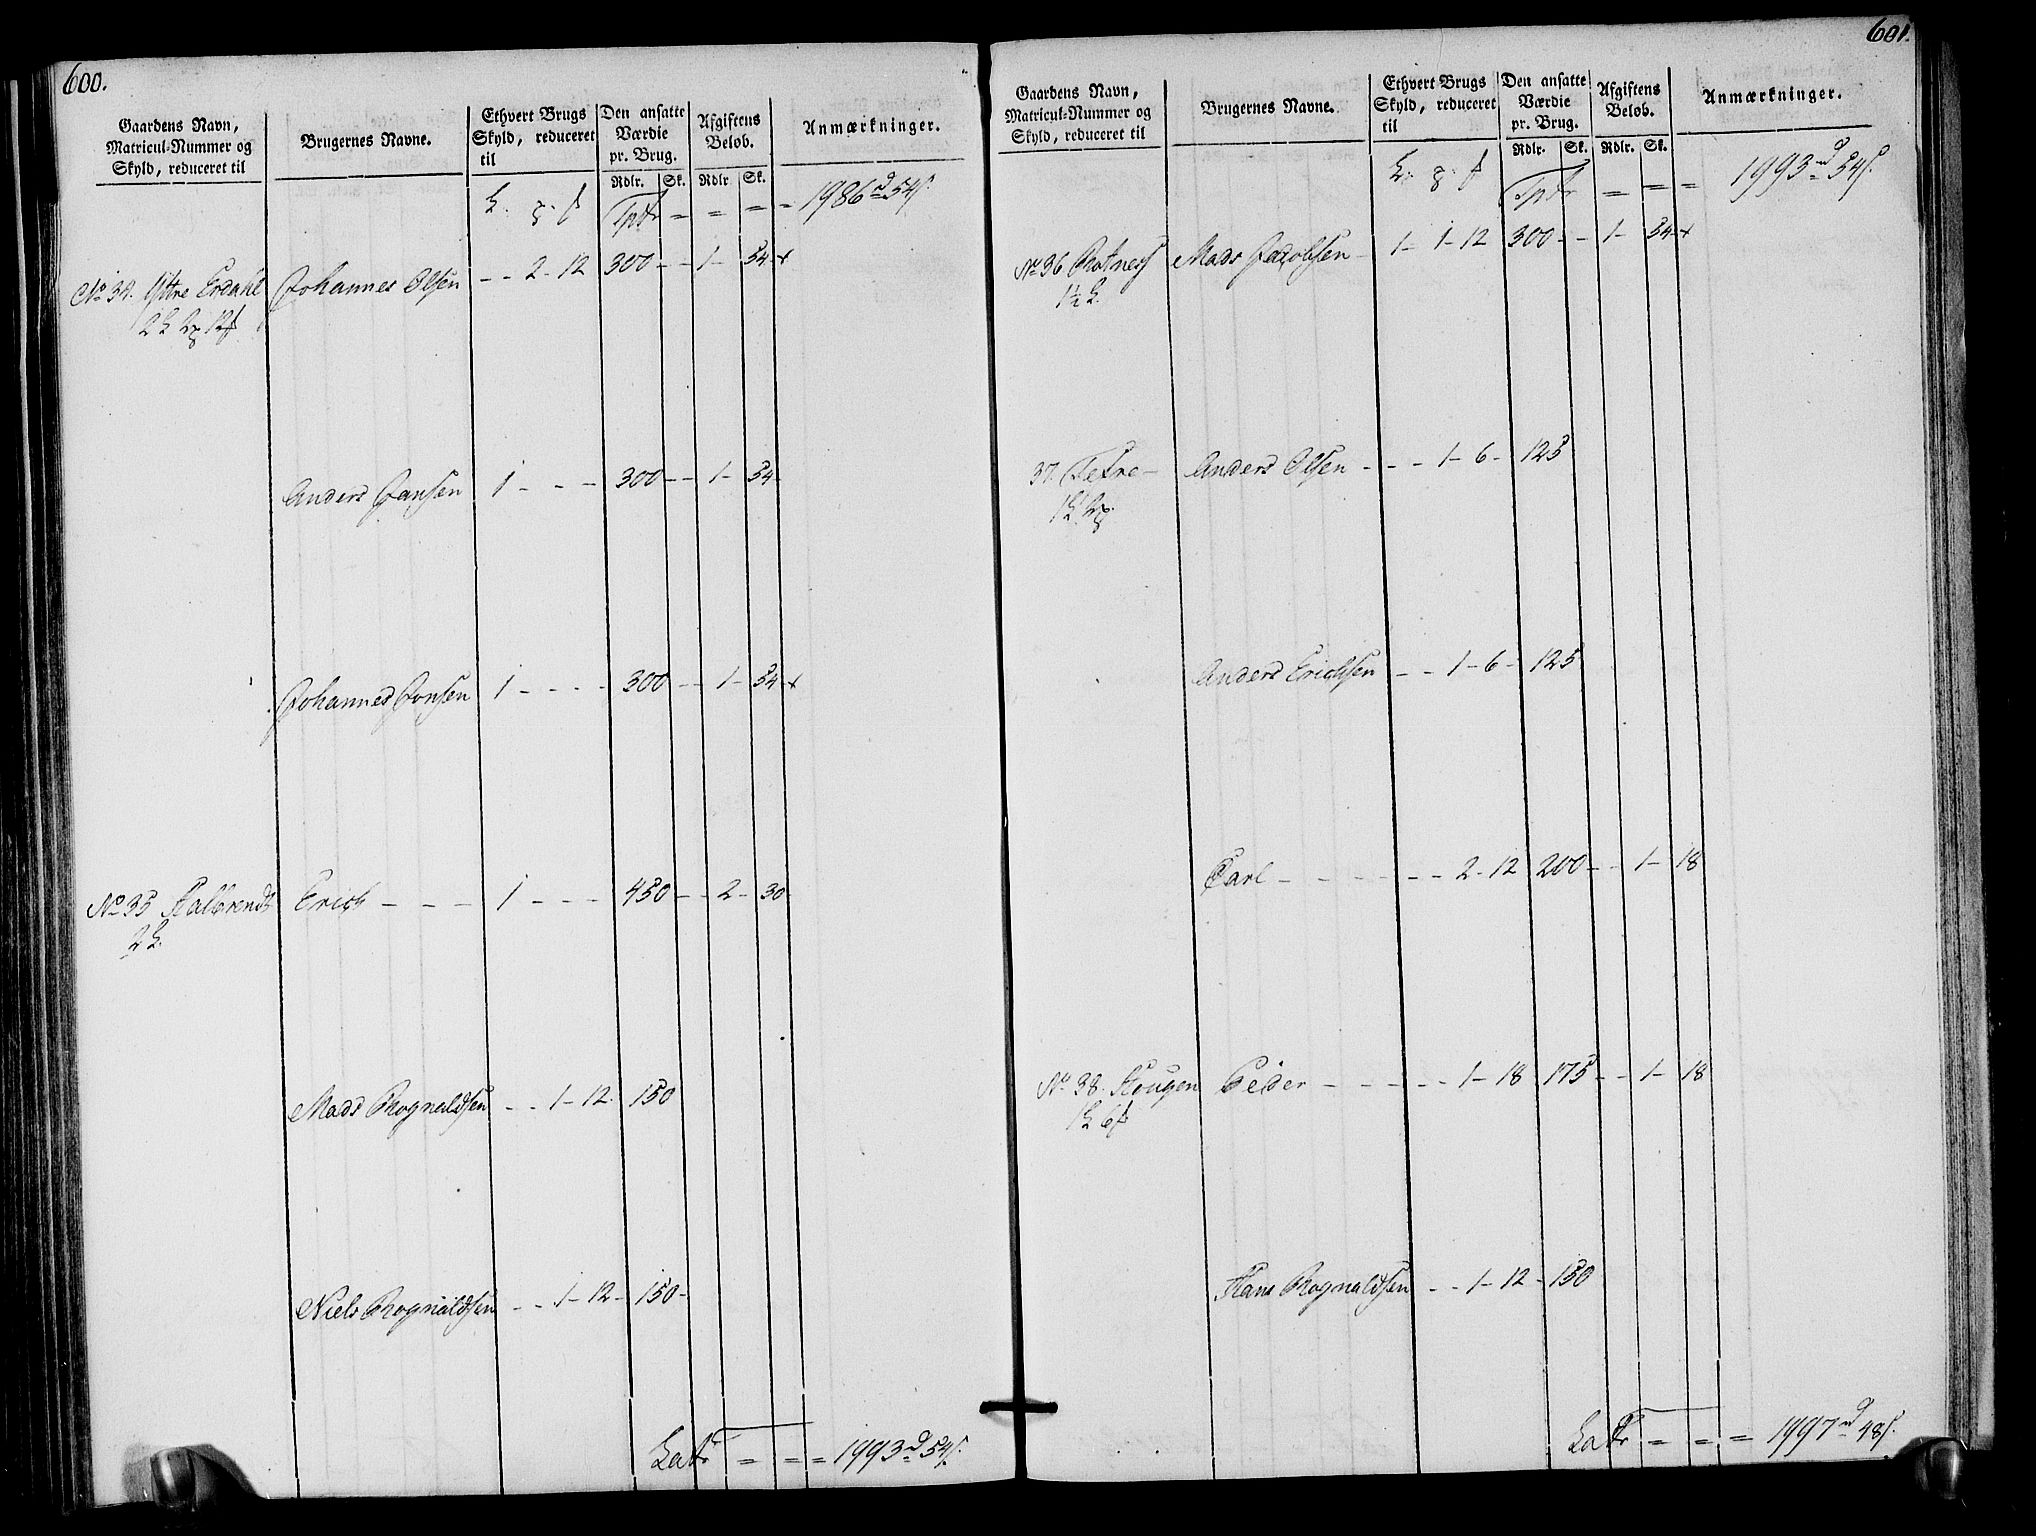 600.
Gaardens Navn, Matricul-Nummer og Skyld, reduceret til
Brugernes Navne.
Ethvert Brugs Skyld, reduceret til
Den ansatte Værdie pr. Brug.
Afgiftens Beløb.
Anmærkninger.
Rdlr. Sk. Rdlr. Sk.
Tptr = = = = 1986 54
No 34. Yttre Erdahl Johannes Olsen - - 2 - 12 300 - - 1 - 54 +
Anders Jansen 1 - - - 300 - - 1 - 54
Johannes Jonsen 1 - - - - 300 - - 1 - 54 +
No 35 Halbrendt Erich - - - 1 - - - 450 - - 2 - 30
Mads Rognaldsen - - 1 - 12. 150
Niels Rognaldsen - - 1 - 12 - 150 -
Latr = = = 1993 54
601.
Gaardens Navn, Matricul-Nummer og Skyld, reduceret til
Brugernes Navne.
Ethvert Brugs Skyld, reduceret til
Den ansatte Værdie pr. Brug.
Afgiftens Beløb.
Anmærkninger.
Rdlr. Sk. Rdlr. Sk.
Tptr = = = 1993 54
No 36 Rotness Mads Jacobsen - 1 - 1 - 12 300 - - 1 - 54 +
1½
37. Tefre - Anders Olsen - - - 1 - 6 - 125
Anders Erichsen - - 1 - 6 - 125
Carl - - - - - - 2 - 12 200 - - 1 - 18
No 38. Hougen Peder - - - - - 1 - 18 175 - - 1 - 18
Hans Rognaldsen - - 1 - 12 - 150
Latr = = = 1997 48